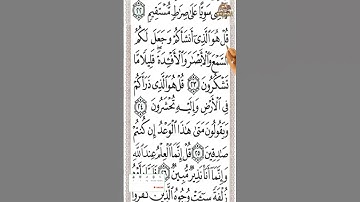 سَوِيًّا عَلَىٰ صِرَٰطٍ مُّسْتَقِيمٍ ٢٢
قُلْ هُوَ ٱلَّذِىٓ أَنشَأَكُمْ وَجَعَلَ لَكُمُ
ٱلسَّمْعَ وَٱلْأَبْصَٰرَ وَٱلْأَفْـِٔدَةَ ۖ قَلِيلًا مَّا
تَشْكُرُونَ ٢٣ قُلْ هُوَ ٱلَّذِى ذَرَأَكُمْ
فِى ٱلْأَرْضِ وَإِلَيْهِ تُحْشَرُونَ ٢٤
وَيَقُولُونَ مَتَىٰ هَٰذَا ٱلْوَعْدُ إِن كُنتُمْ
صَٰدِقِينَ ٢٥ قُلْ إِنَّمَا ٱلْعِلْمُ عِندَ ٱللَّهِ
وَإِنَّمَآ أَنَا۠ نَذِيرٌ مُّبِينٌ ٢٦ فَلَمَّا رَأَوْهُ
زُلْفَةً سِيٓـَٔتْ وُجُوهُ ٱلَّذِينَ كَفَرُوا۟